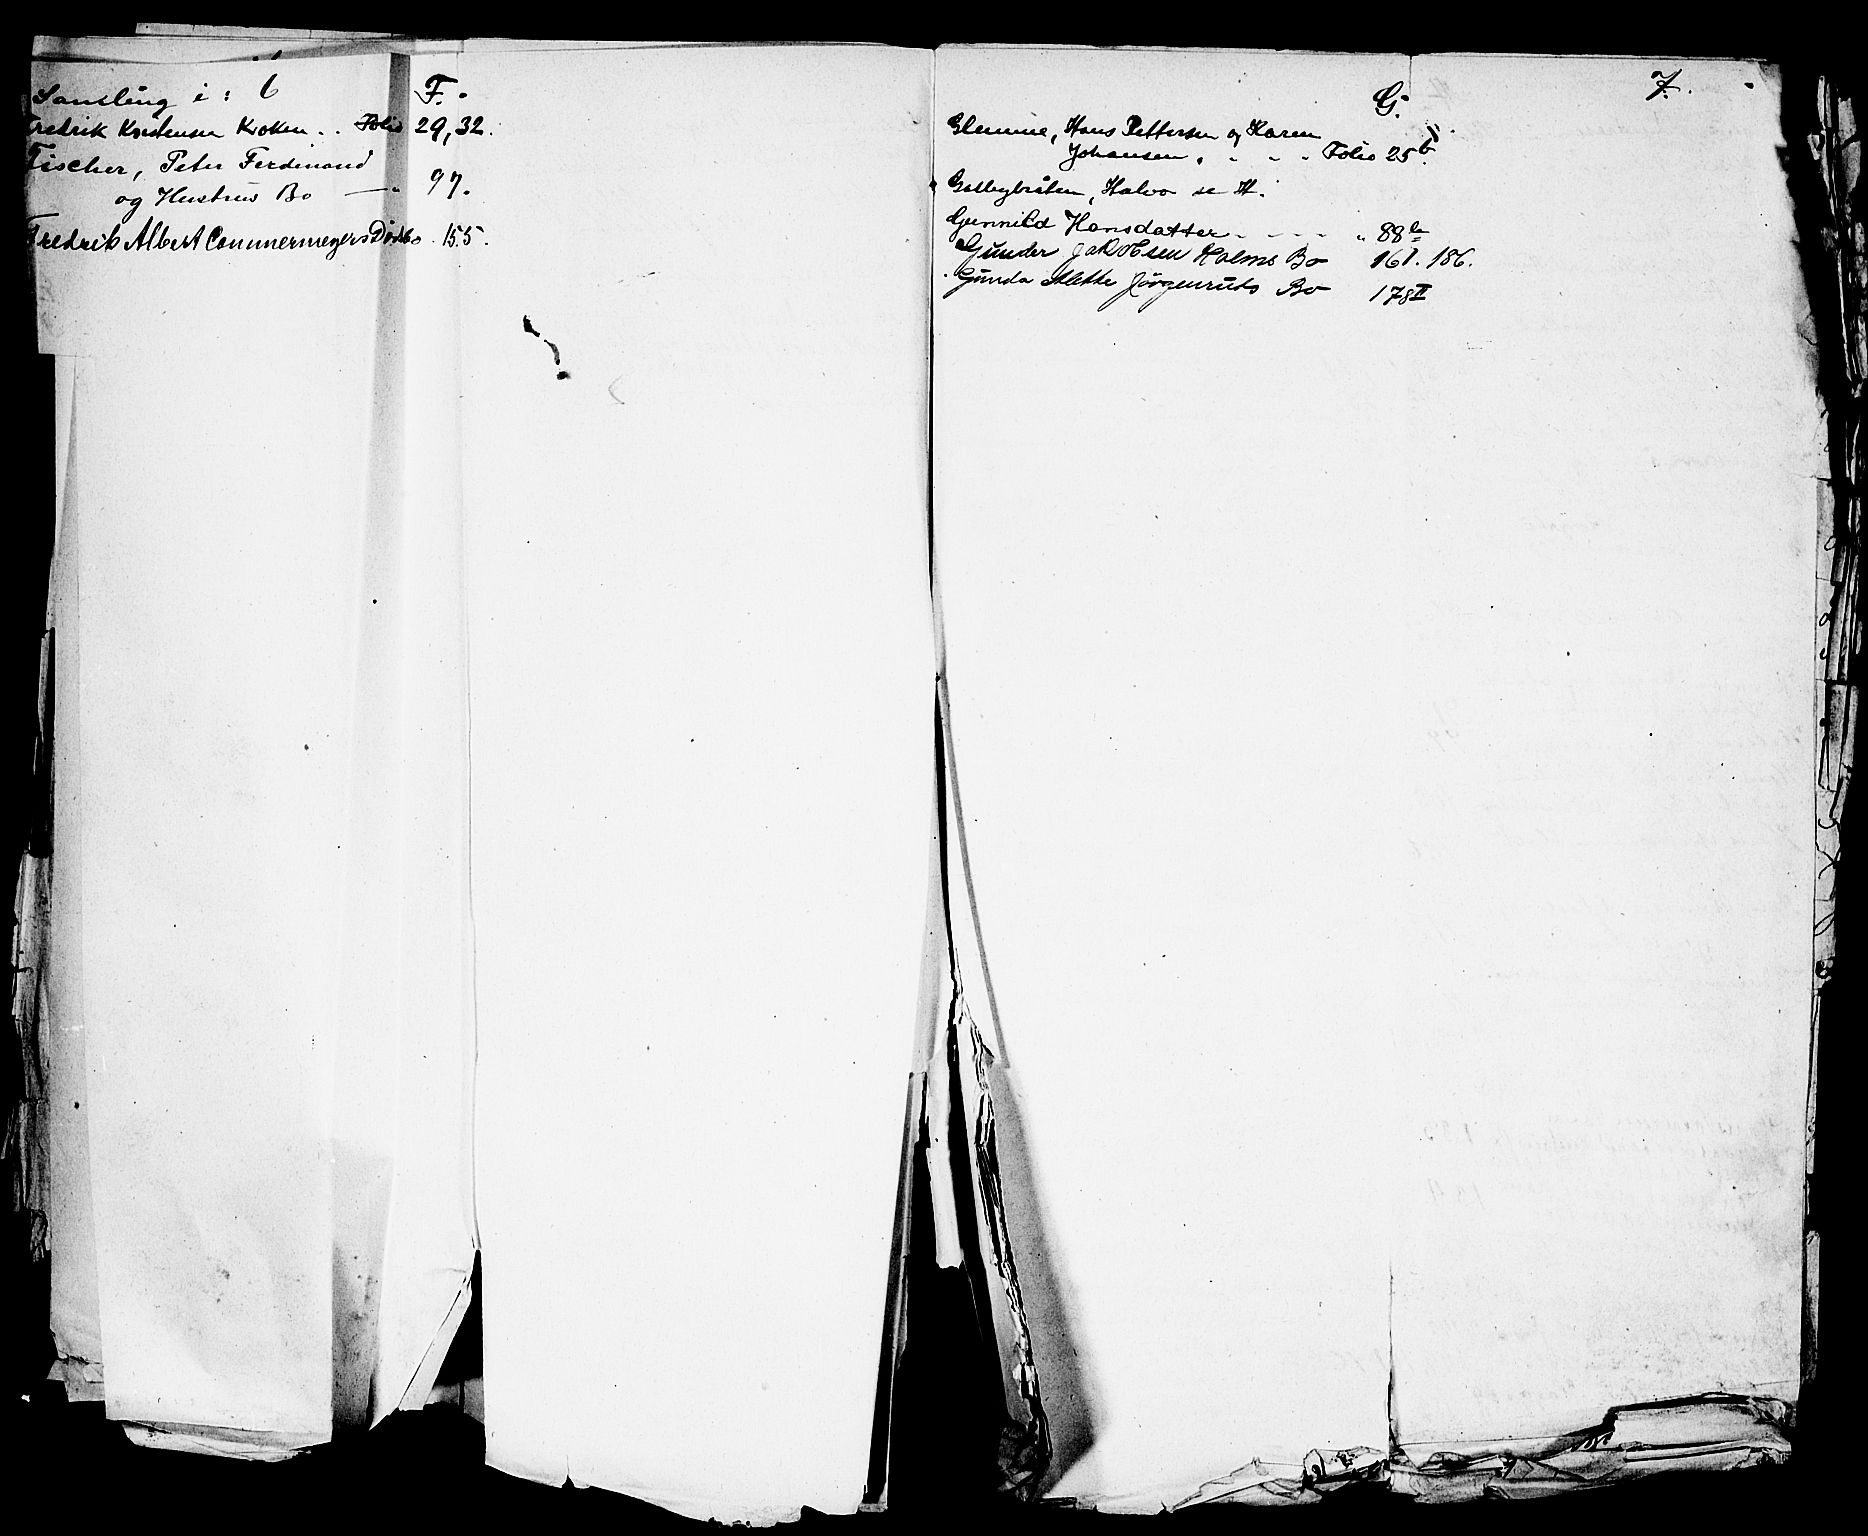 Samling i: 6
F.
Fredrik Kristensen Kroken . . Folio 29, 32.
Fischer, Peter Ferdinand
og Hustrus Bo — " 97.
Fredrik Albert Cammermeyers Dødsbo . 155.
7.
G.
Glemme, Hans Pettersen og Karen
Johansen . . . . Folio 25b.
Gulbybråten, Halvo se H.
Gunnild Hansdatter . . . . " 88b
Gunder Jakobsen Holms Bo 161. 186.
Gunda Alette Jørgensruds Bo 178 II